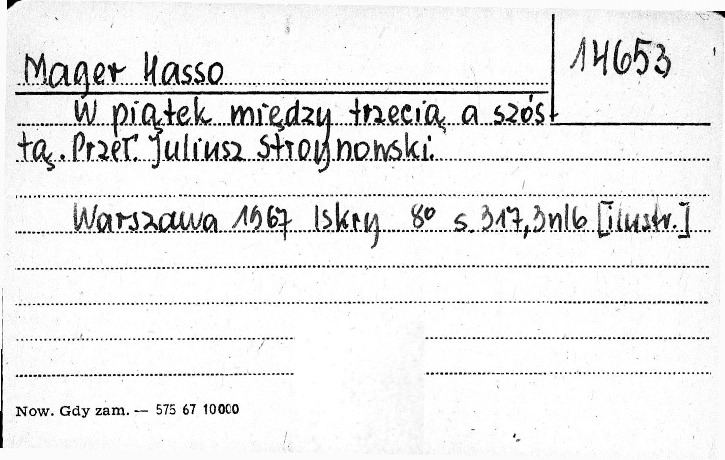 14653
Mager Hasso
W piątek między trzecią a szós
tą. Przeł. Juliusz Stroynowski.
Warszawa 1967 Iskry 8° s. 317, 3nlb [ilustr.]
Now. Gdy zam. — 575 67 10000